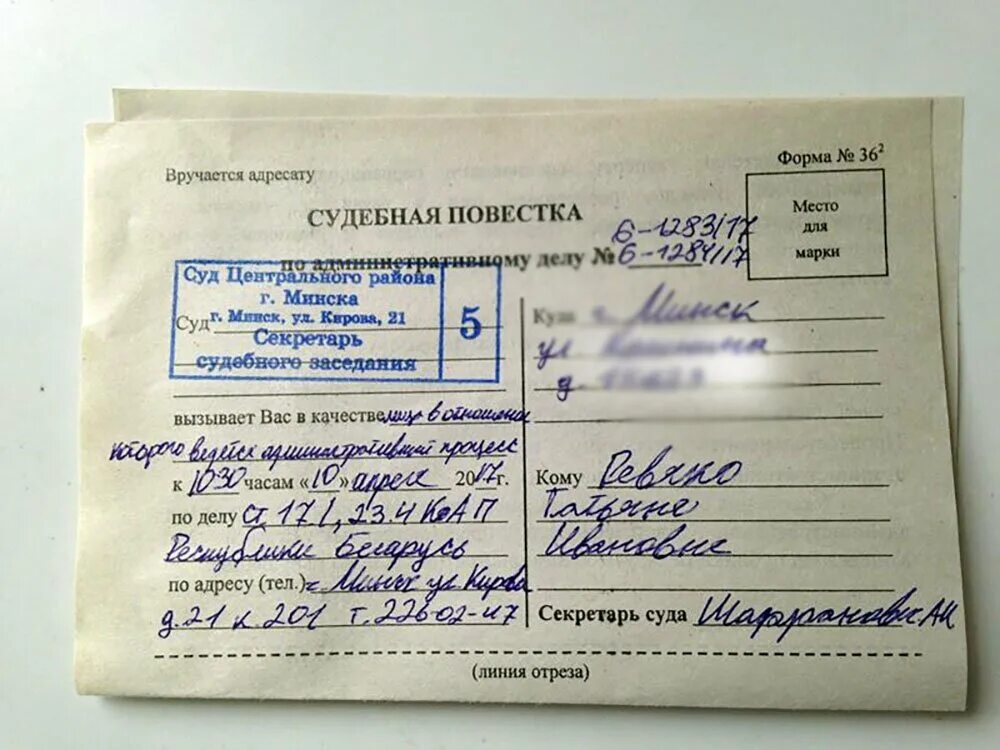 Форма № 36²
Вручается адресату
Место
для
марки
СУДЕБНАЯ ПОВЕСТКА
по административному делу № 6-1283/17
6-1284/17
Суд Центрального района
г. Минска
г. Минск, ул. Кирова, 21
Секретарь
судебного заседания
5
Суд
вызывает Вас в качестве лица в отношении
которого ведется административный процесс
к 1030 часам «10» апреля 2017г.
по делу ст 17.1, 23.4 КоАП
Республики Беларусь
по адресу (тел.) г. Минск ул. Кирова
д.21 к.201 т.226-02-47
Куда г. Минск
ул
д.
Кому Ревяко
Татьяне
Ивановне
Секретарь суда
(линия отреза)